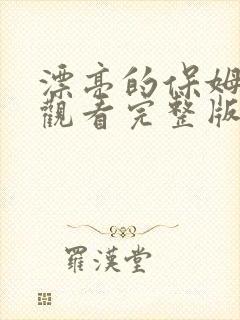 漂亮的保姆
觀看完整版
羅漢堂